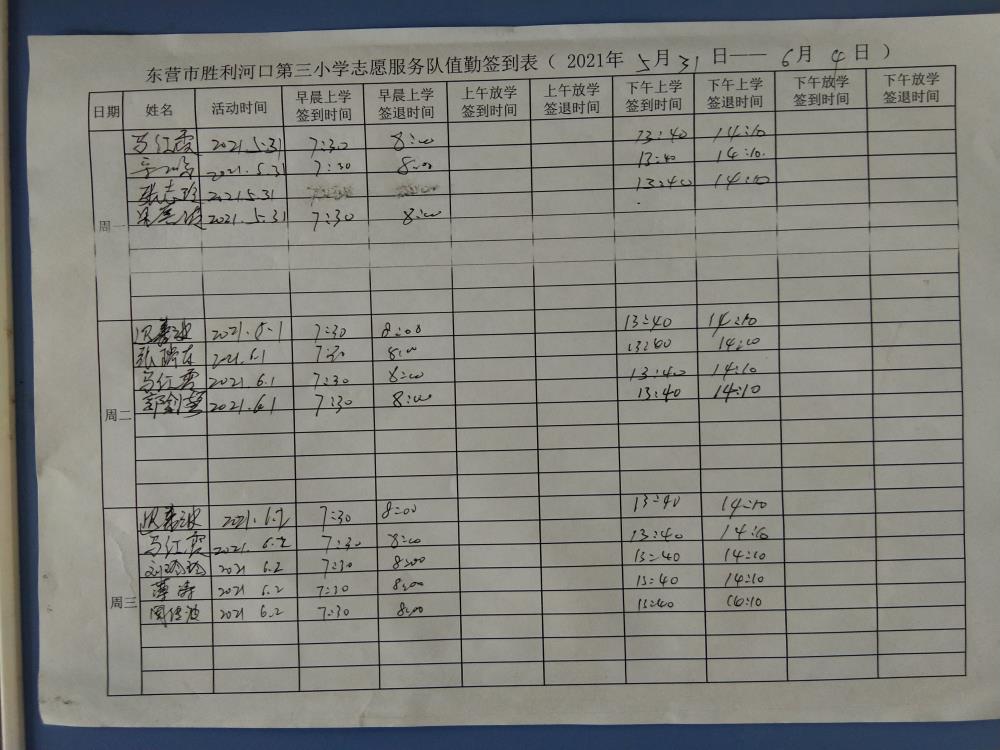 东营市胜利河口第三小学志愿服务队值勤签到表（ 2021年 5月31日—— 6月4日 ）
日期 姓名 活动时间 早晨上学签到时间 早晨上学签退时间 上午放学签到时间 上午放学签退时间 下午上学签到时间 下午上学签退时间 下午放学签到时间 下午放学签退时间
周一
马红霞 2021.5.31 7:30 8:00 13:40 14:10
2021.5.31 7:30 8:00 13:40 14:10.
张志珍 2021.5.31 13:40 14:10
2021.5.31 7:30 8:00
周二
7:30 8:00 13:40 14:10
张 7:30 8:00 14:10
马红霞 2021.6.1 7:30 8:00 13:40 14:10
2021.6.1 7:30 8:00 13:40 14:10
周三
2021.6.2 7:30 8:00 13:40 14:10
马红霞 2021.6.2 7:30 8:00 13:40 14:10
刘玲玲 2021 6.2 7:30 8:00 13:40 14:10
薄涛 2021 6.2 7:30 8:00 13:40 14:10
2021 6.2 7:30 8:00 13:40